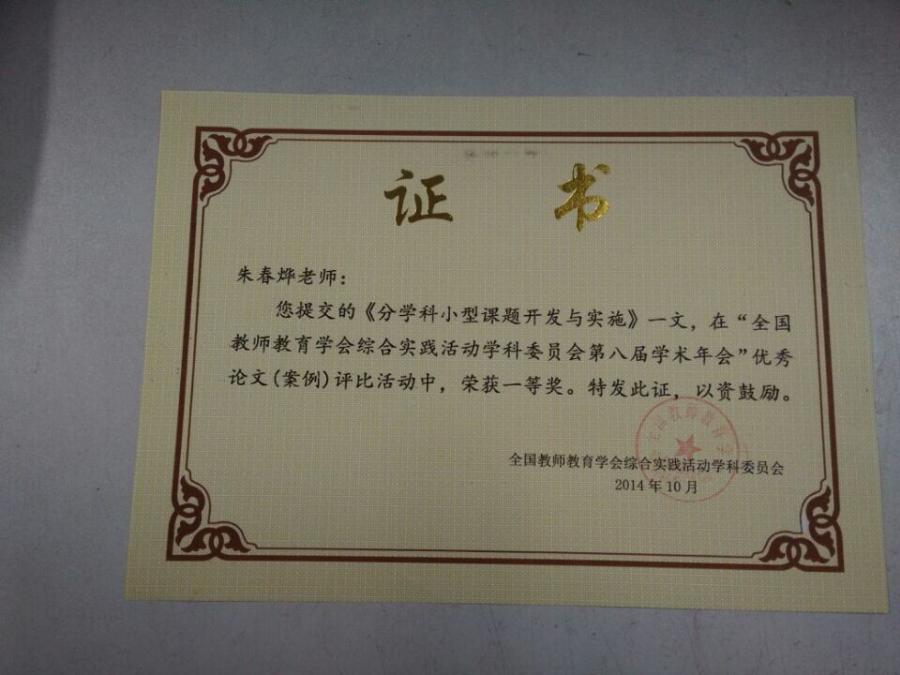 证 书
朱春烨老师：
您提交的《分学科小型课题开发与实施》一文，在“全国
教师教育学会综合实践活动学科委员会第八届学术年会”优秀
论文(案例)评比活动中，荣获一等奖。特发此证，以资鼓励。
全国教师教育学会综合实践活动学科委员会
2014年10月